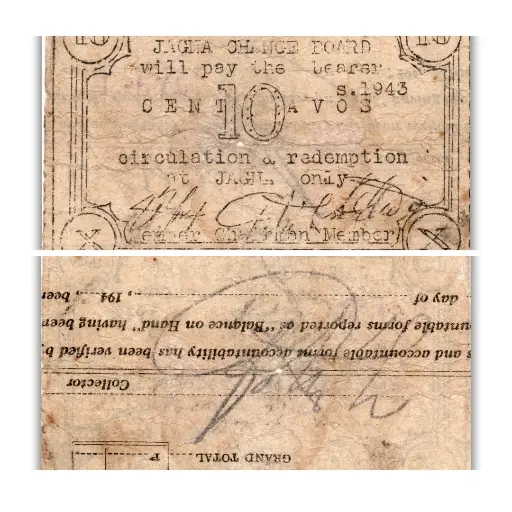 10 10
JAGNA CHANGE BOARD
will pay the bearer
s.1943
CENT 10 AVOS
circulation & redemption
at JAGNA only
Member Chairman Member
X X
GRAND TOTAL P
Collector
s and accountable forms accountability has been verified b
untable forms reported as "Balance on Hand" having been
day of , 194 , bee